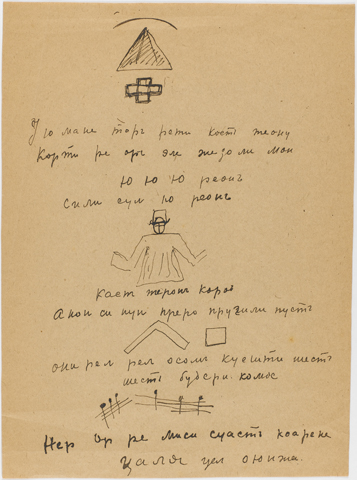 Ую мане торъ роти кость жеону
Корти ре орь эле жедоли мон
Ю Ю Ю реонъ
Сили сул Ю реонъ
Каст жеронъ Коров
А кон си нун преро пружили пусть
они рел рел осомъ куешти шесть
шесть бубери. комос
Нер Ор ре миси счасть коарене
Цаля цел оюнжа.